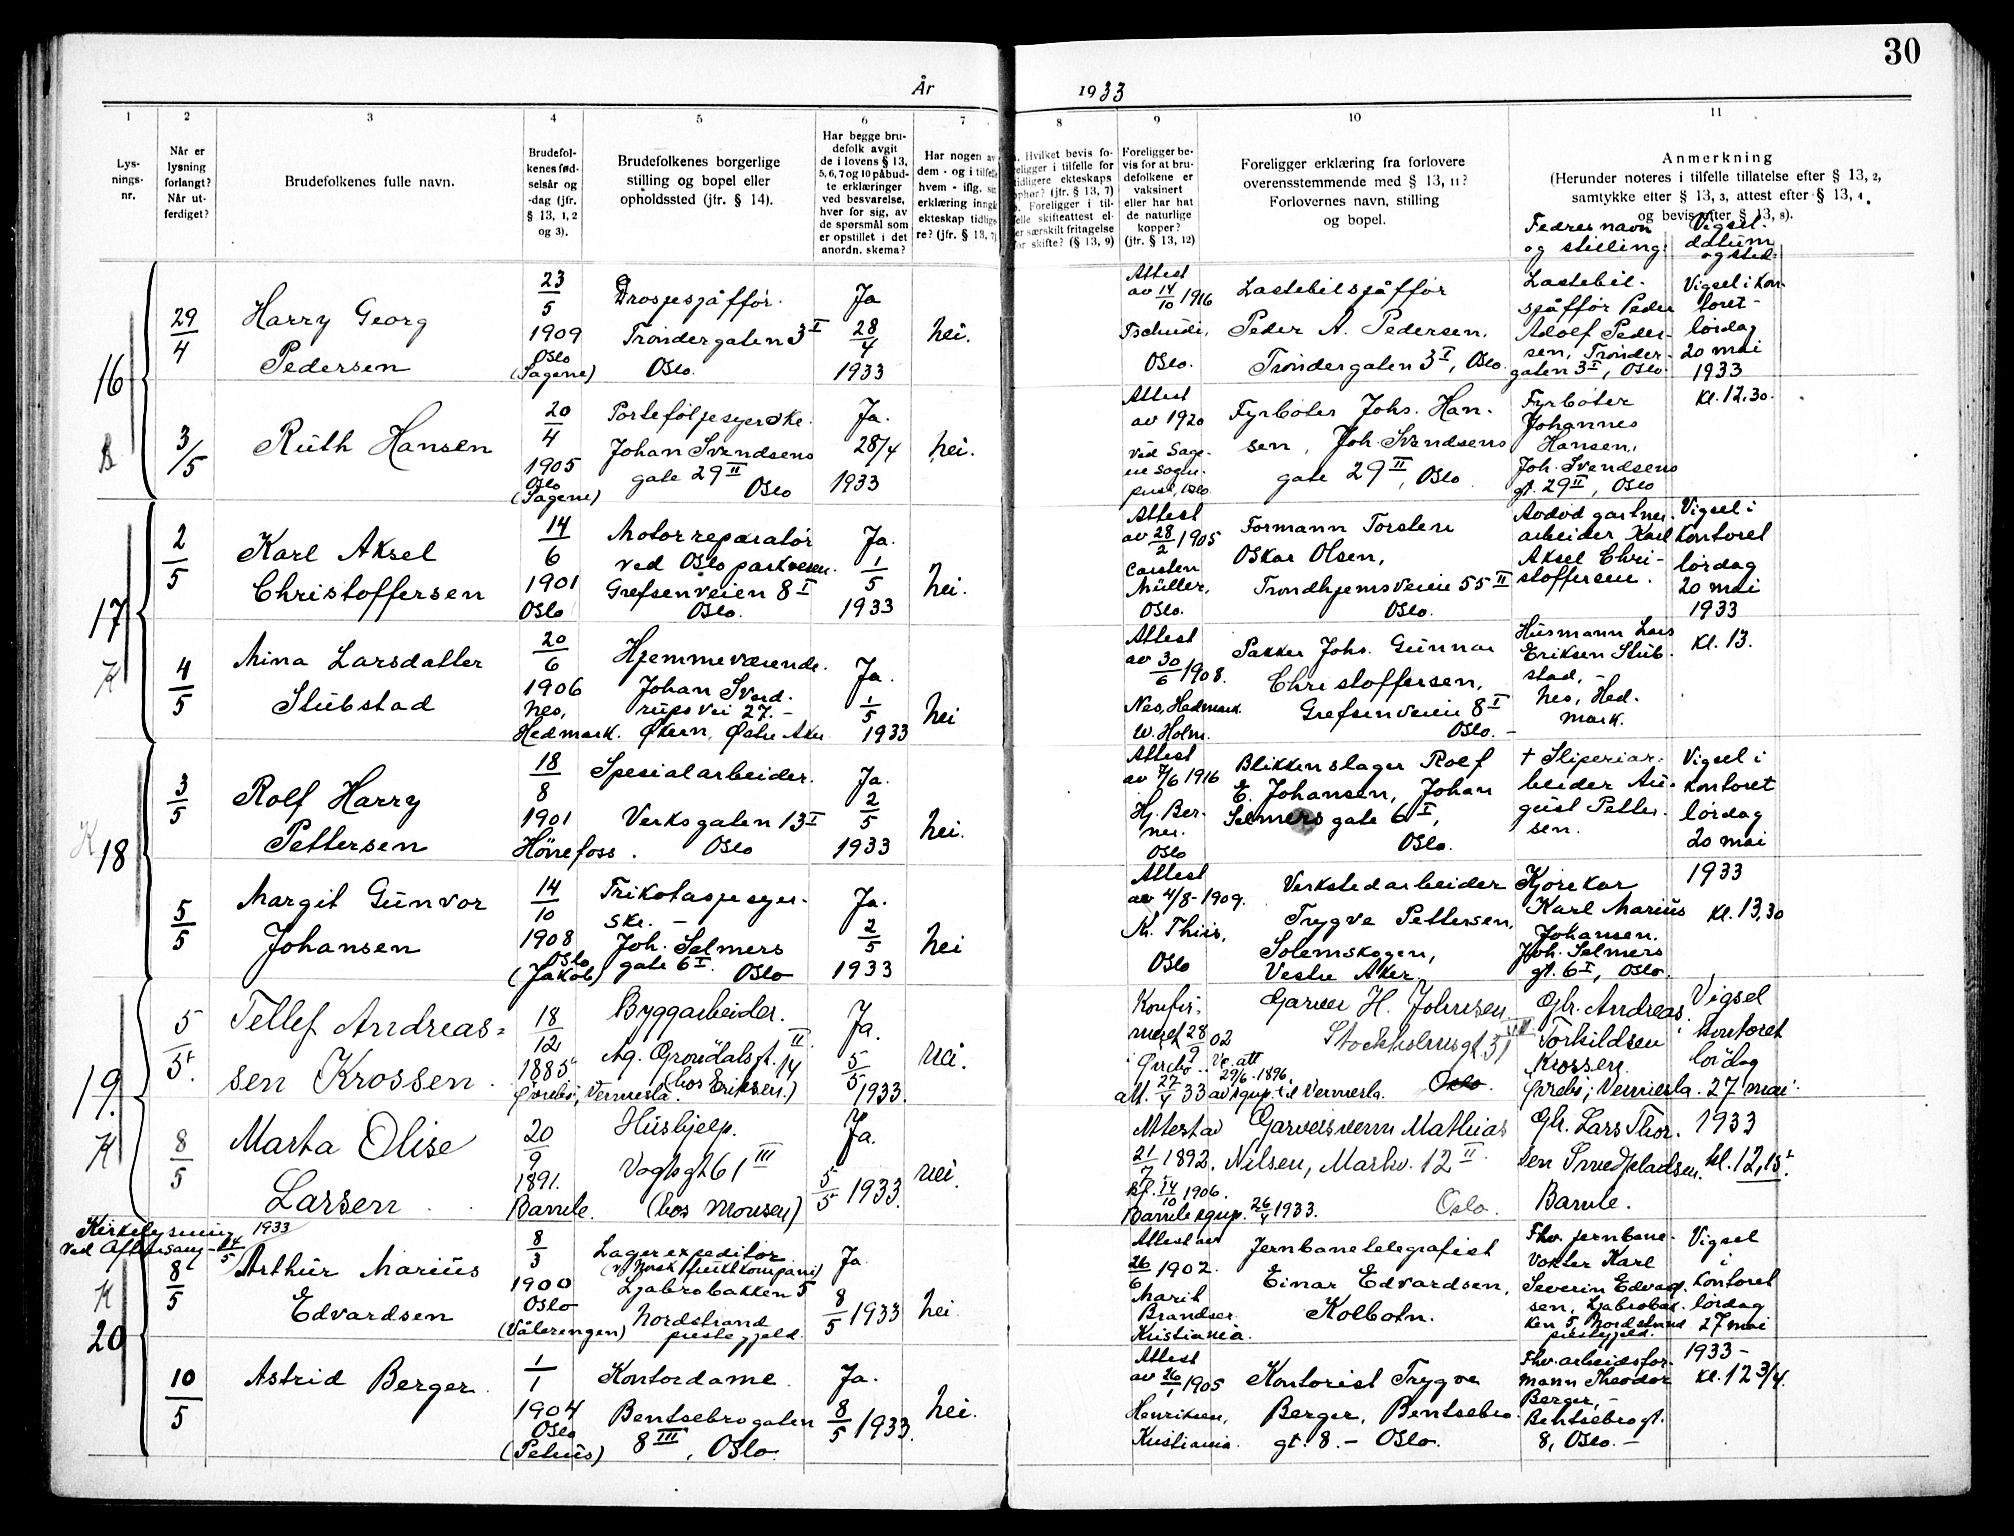 30
År 1933
1 2 3 4 5 6 7 8 9 10 11
Lys-
nings-
nr.
Når er
lysning
forlangt?
Når ut-
ferdiget?
Brudefolkenes fulle navn.
Brudefol-
kenes fød-
selsår og
-dag (jfr.
§ 13, 1, 2
og 3).
Brudefolkenes borgerlige
stilling og bopel eller
opholdssted (jfr. § 14).
Har begge bru-
defolk avgit
de i lovens § 13,
5, 6, 7 og 10 påbud-
te erklæringer
ved besvarelse,
hver for sig, av
de spørsmål som
er opstillet i det
anordn. skema?
Har nogen av
dem - og i tilfelle
hvem - iflg. sin
erklæring inngått
ekteskap tidlige-
re? (jfr. § 13, 7)
Hvilket bevis fo-
religger i tilfelle for
tidligere ekteskaps
ophør? (jfr. § 13, 7)
Foreligger i til-
felle skifteattest el-
ler særskilt fritagelse
for skifte? (§ 13, 9)
Foreligger be-
vis for at bru-
defolkene er
vaksinert
eller har hat
de naturlige
kopper?
(jfr. § 13, 12)
Foreligger erklæring fra forlovere
overensstemmende med § 13, 11?
Forlovernes navn, stilling
og bopel.
Anmerkning
(Herunder noteres i tilfelle tillatelse efter § 13, 2,
samtykke efter § 13, 3, attest efter § 13, 4,
og bevis efter § 13, 8).
Fedres navn
og stilling.
Vigsel.
datum
og sted.
16
B
29/4
Harry Georg
Pedersen
23/5
1909
Oslo
(Sagene)
Drosjesjåffør.
Trondergaten 3 I
Oslo.
Ja
28/4
1933
Nei.
Attest
av 14/10 1916
Tschudi,
Oslo.
Lastebilsjåffør
Peder A. Pedersen,
Trondergaten 3 I, Oslo.
Lastebil-
sjåffør Peder
Adolf Peder-
sen, Tronder-
gaten 3 I, Oslo.
Vigsel i Kon-
toret -
lørdag
20 mai
1933
Kl. 12,30.
3/5
Ruth Hansen
20/4
1905
Oslo
(Sagene)
Porteføljesyerske.
Johan Svendsens
gate 29 II
Oslo
Ja.
28/4
1933
Nei.
Attest
av 1920
ved Sage-
ne sogn.
prest, Oslo.
Fyrbøter Johs. Han-
sen, Joh. Svendsens
gate 29 II, Oslo.
Fyrbøter
Johannes
Hansen,
Joh. Svendsens
gt. 29 II, Oslo
17
K
2/5
Karl Aksel
Christoffersen
14/6
1901
Oslo
Motorreparatør
ved Oslo parkvesen.
Grefsenveien 8 I
Oslo.
Ja.
1/5
1933
Nei.
Attest
av 28/2 1905
Carsten
Müller,
Oslo.
Formann Torsten
Oskar Olsen,
Trondhjemsveien 55 II
Oslo.
Avdød gartner-
arbeider Karl
Aksel Chri-
stoffersen.
Vigsel i
Kontoret
lørdag
20 mai
1933
Kl. 13.
4/5
Mina Larsdatter
Stubstad
20/6
1906
Nes,
Hedmark.
Hjemmeværende.
Johan Sverd-
rups vei 27. -
Økern, Østre Aker
Ja.
1/5
1933
Nei
Attest
av 30/6 1908.
Nes, Hedmark.
W. Holm.
Pakker Johs. Gunnar
Christoffersen,
Grefsenveien 8 I
Oslo. -
Husmann Lars
Eriksen Stub-
stad, -
Nes, Hed-
mark.
18
K
3/5
Rolf Harry
Pettersen
18/8
1901
Hønefoss.
Spesialarbeider.
Verksgaten 13 I
Oslo
Ja.
2/5
1933
Nei.
Attest
av 7/6 1916
Hj. Ber-
ner.
Oslo
Blikkenslager Rolf
E. Johansen, Johan
Selmers gate 6 I,
Oslo.
† Sliperiar-
beider Au-
gust Petter-
sen.
Vigsel i
Kontoret
lørdag
20 mai
1933
Kl. 13,30
5/5
Margit Gunvor
Johansen
14/10
1908
Oslo
(Jakob)
Trikotasjesyer-
ske. -
Joh. Selmers
gate 6 I. Oslo
Ja.
2/5
1933
Nei
Attest
av 4/8-1909.
Kr. Thiis,
Oslo
Verkstedarbeider
Trygve Pettersen,
Solemskogen,
Vestre Aker.
Kjørekar
Karl Marius
Johansen.
Joh. Selmers
gt. 6 I, Oslo.
19.
K
5/5.
Tellef Andreas-
sen Krossen.
18/12
1885
Øvrebø, Vennesla.
Byggarbeider.
Ag. Grøndalsgt. 14 II
(hos Eriksen)
Ja.
5/5 1933.
nei.
Konfir-
mert 28/9 02
i Øvrebø. Va. att
29/6-1896.
att. 27/4 33 av sgnp. til Vennesla.
Garver H. Johnsen
Stockholmsgt. 31 III
Oslo.
Gbr. Andreas
Torkildsen
Krossen.
Øvrebø, Vennesla.
Vigsel
i kontoret
lørdag
27 mai
1933
kl. 12,15
8/5
Marta Olise
Larsen
20/9
1891.
Bamle.
Hushjelp.
Vogtsgt 61 III
(hos Monsen)
Ja.
5/5 1933.
nei.
Attest av
21/7 1892.
Kf. 14/10 1906.
Bamle sgnp. 26/4 1933.
Garversvenn Mathias
Nilsen, Markv. 12 II.
Oslo.
Gbr. Lars Thor-
sen Smedpladsen.
Bamle.
Kirkelysning 1933
ved Aftensang - 14/5
K
20
8/5
Arthur Marius
Edvardsen
8/3
1900
Oslo
(Vålerengen)
Lagerexpeditør
(v/ Norsk fruktkompani)
Ljabrobakken 5
Nordstrand
prestegjeld.
Ja.
8/5 1933
Nei.
Attest av
26/6 1902.
Marit
Brandser.
Kristiania.
Jernbanetelegrafist
Einar Edvardsen,
Kolbotn.
Fhv. jernbane-
vokter Karl
Severin Edvard-
sen, Ljabrobak-
ken 5, Nordstrand
prestegjeld.
Vigsel
i
kontoret
lørdag
27 mai
1933 -
Kl. 12 3/4.
10/5
Astrid Berger.
1/1
1904
Oslo
(Petrus)
Kontordame.
Bentsebrogaten
8 III, Oslo.
Ja.
8/5 1933.
Nei.
Attest
av 26/1 1905
Henriksen,
Kristiania.
Kontorist Trygve
Berger, Bentsebro-
gt. 8. - Oslo.
Fhv. arbeidsfor-
mann Theodor
Berger, -
Bentsebrogt.
8, Oslo. -